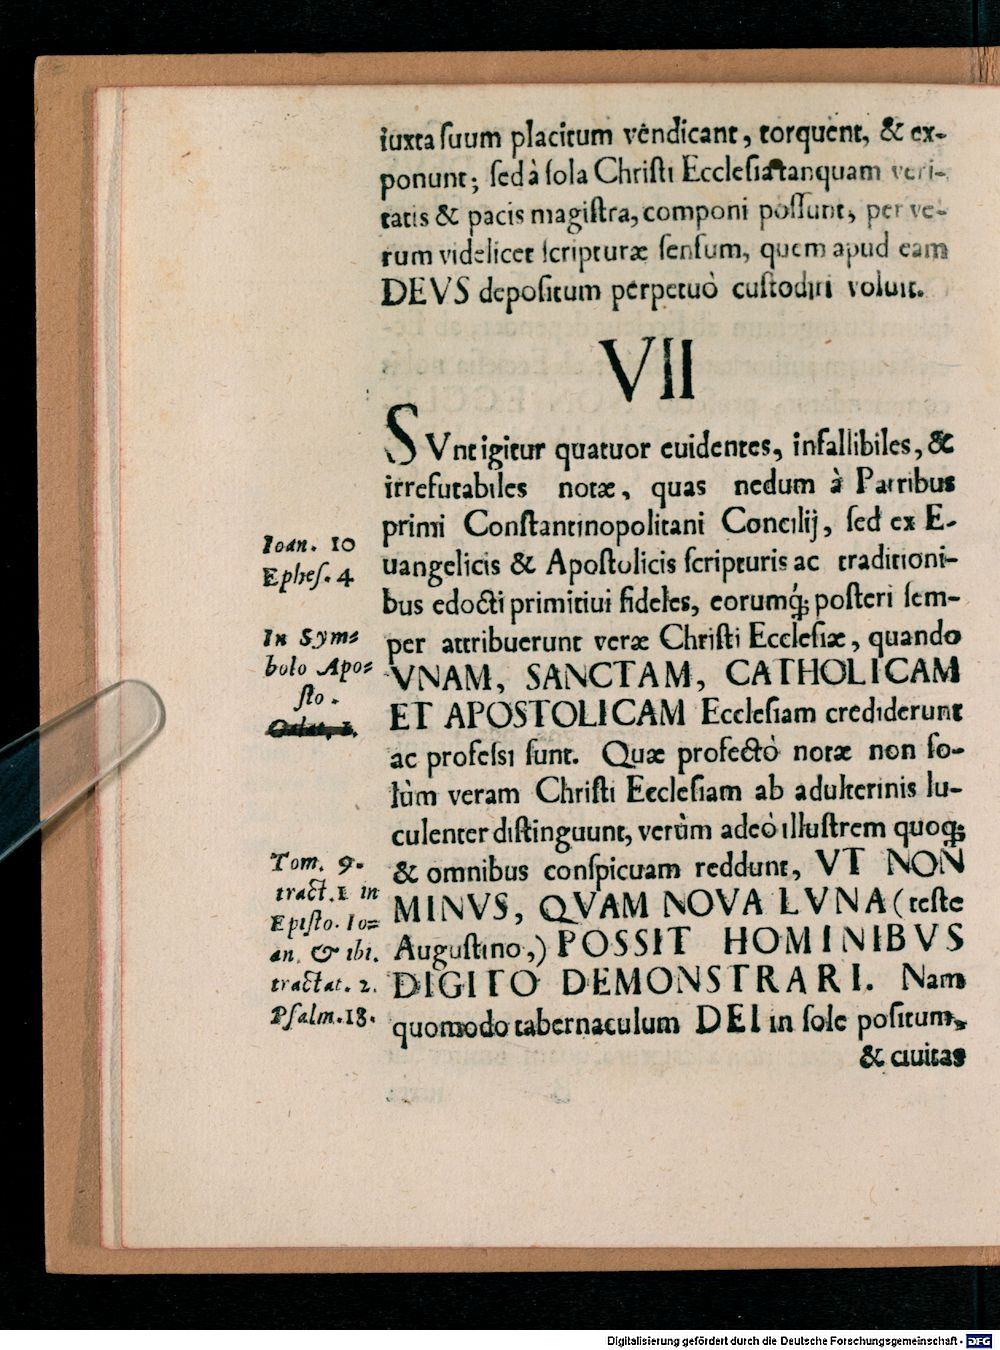 iuxta suum placitum vēndicant, torquent, & ex-
ponunt; sed à sola Christi Ecclesia tanquam veri-
tatis & pacis magistra, componi possunt, per ve-
rum videlicet scripturæ sensum, quem apud eam
DEVS depositum perpetuò custodiri voluit.
VII
SVnt igitur quatuor euidentes, infallibiles, &
irrefutabiles notæ, quas nedum à Patribus
primi Constantinopolitani Concilij, sed ex E-
uangelicis & Apostolicis scripturis ac traditioni-
bus edocti primitiui fideles, eorumq́; posteri sem-
per attribuerunt veræ Christi Ecclesiæ, quando
VNAM, SANCTAM, CATHOLICAM
ET APOSTOLICAM Ecclesiam crediderunt
ac professi sunt. Quæ profectò notæ non so-
lùm veram Christi Ecclesiam ab adulterinis lu-
culenter distinguunt, verùm adeò illustrem quoq;
& omnibus conspicuam reddunt, VT NON
MINVS, QVAM NOVA LVNA (teste
Augustino,) POSSIT HOMINIBVS
DIGITO DEMONSTRARI. Nam
quomodo tabernaculum DEI in sole positum,
& ciuitas
Ioan. 10
Ephes. 4
In Sym=
bolo Apo=
sto.
Galat. 1.
Tom. 9.
tract. 1 in
Episto. Io=
an. & ibi.
tractat. 2.
Psalm. 18.
Digitalisierung gefördert durch die Deutsche Forschungsgemeinschaft - DFG